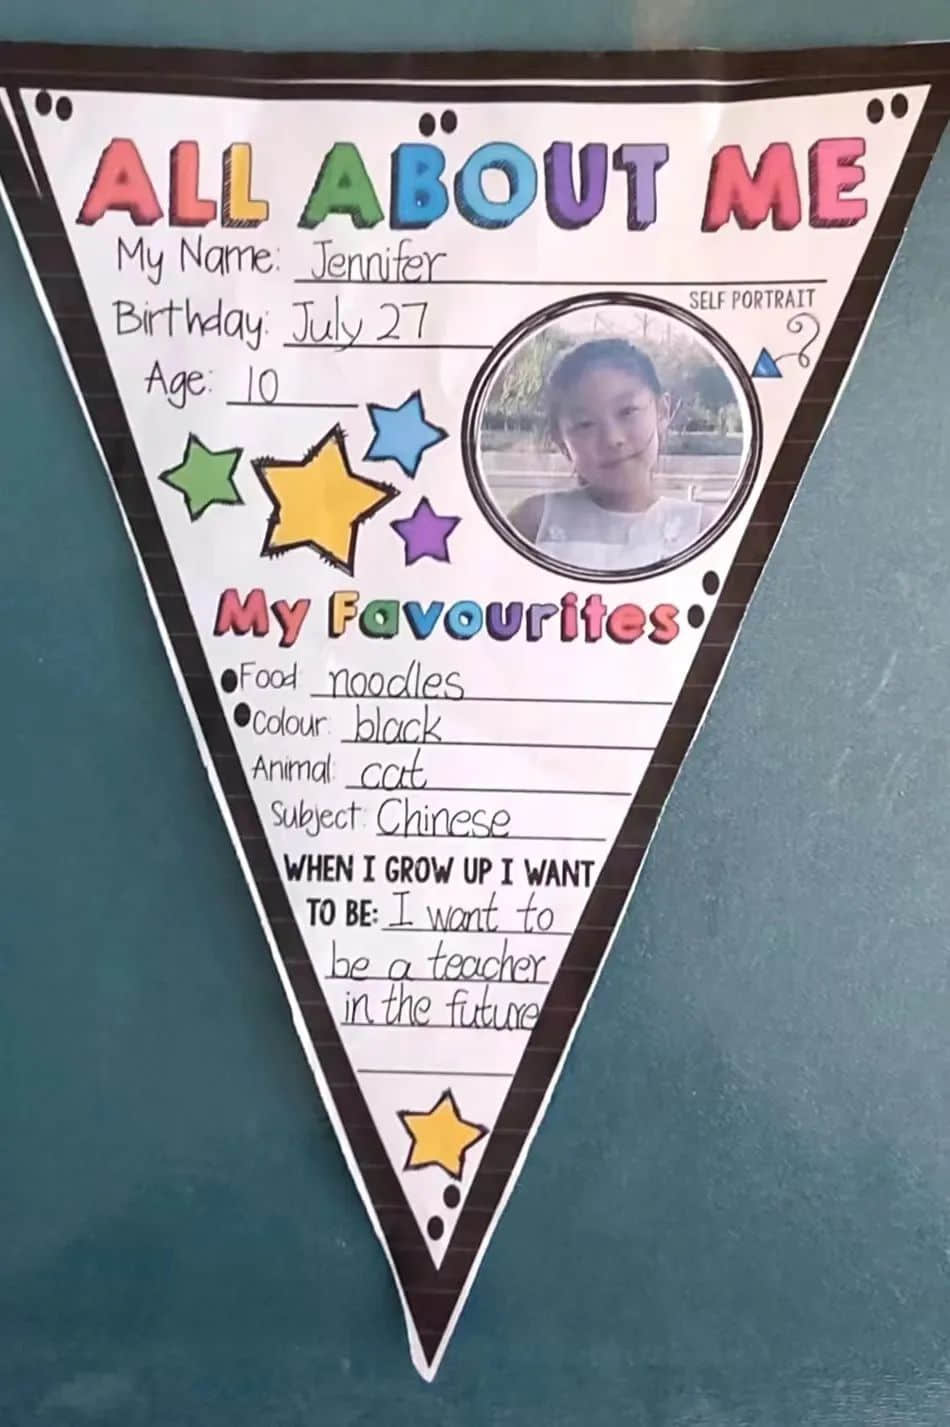 ALL ABOUT ME
My Name: Jennifer
SELF PORTRAIT
Birthday: July 27
Age: 10
My Favourites
Food: noodles
Colour: black
Animal: cat
Subject: Chinese
WHEN I GROW UP I WANT
TO BE: I want to
be a teacher
in the future